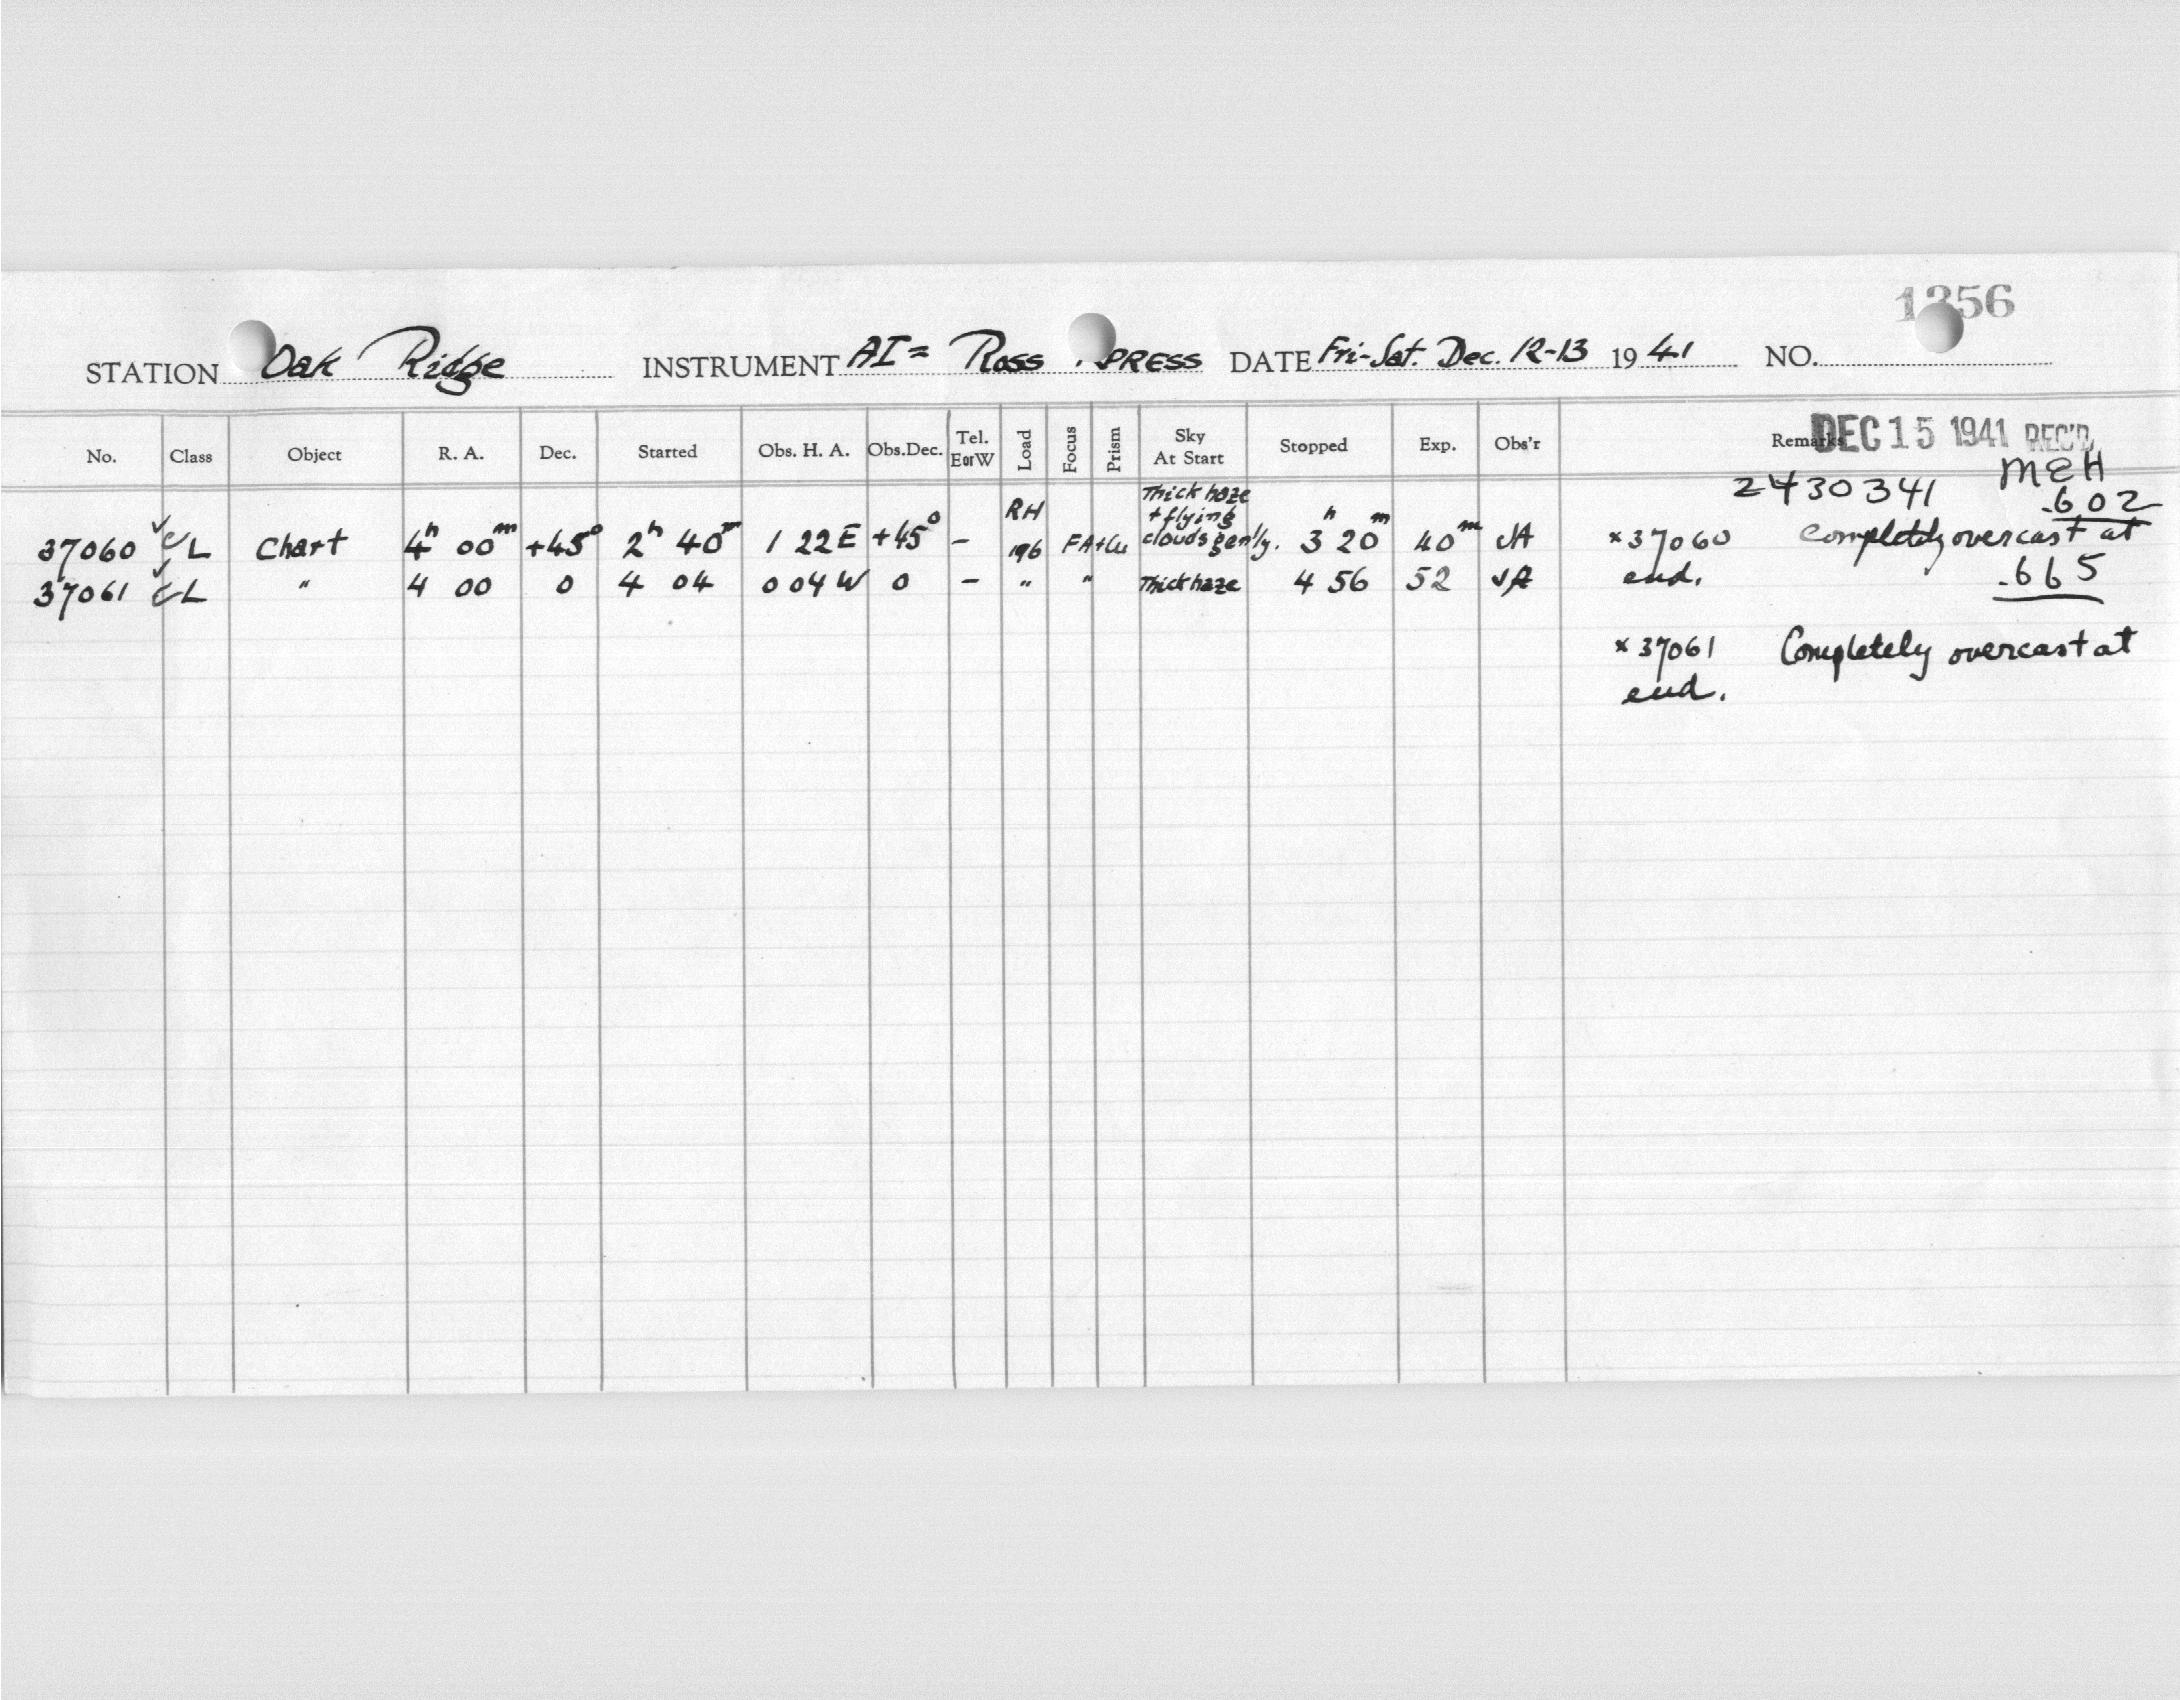 1356
STATION Oak Ridge INSTRUMENT AI = Ross PRESS DATE Fri-Sat. Dec. 12-13 1941 NO.
No. Class Object R. A. Dec. Started Obs. H. A. Obs.Dec. Tel. E or W Load Focus Prism Sky At Start Stopped Exp. Obs'r Remarks DEC 15 1941 REC'D
2430341 MEH
.602
37060 ✓ CL Chart 4h 00m +45° 2h 40m 1 22E +45° - RH 196 FA+Cu Thick haze + flying clouds genlly. 3h 20m 40m JA × 37060 Completely overcast at end.
37061 ✓ CL " 4 00 0 4 04 0 04W 0 - " " Thick haze 4 56 52 JA
.665
× 37061 Completely overcast at
end.